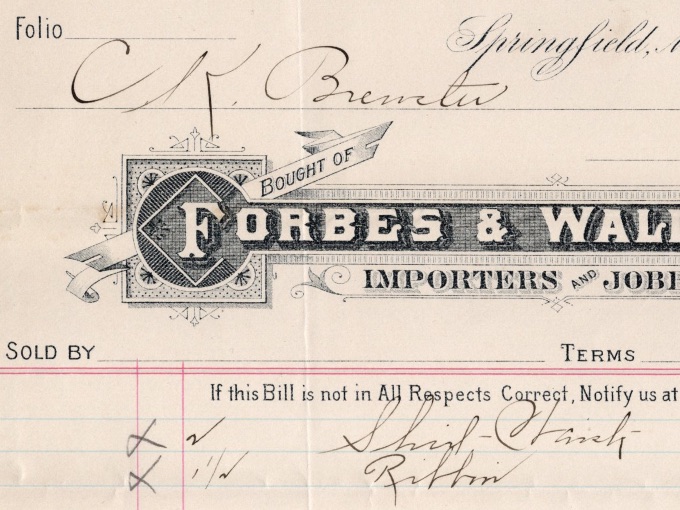 Folio
Springfield, M
C. K. Brewster
BOUGHT OF
FORBES & WALL
IMPORTERS AND JOBB
SOLD BY TERMS
If this Bill is not in All Respects Correct, Notify us at
XX 2
XX 1 1/2 Ribbin